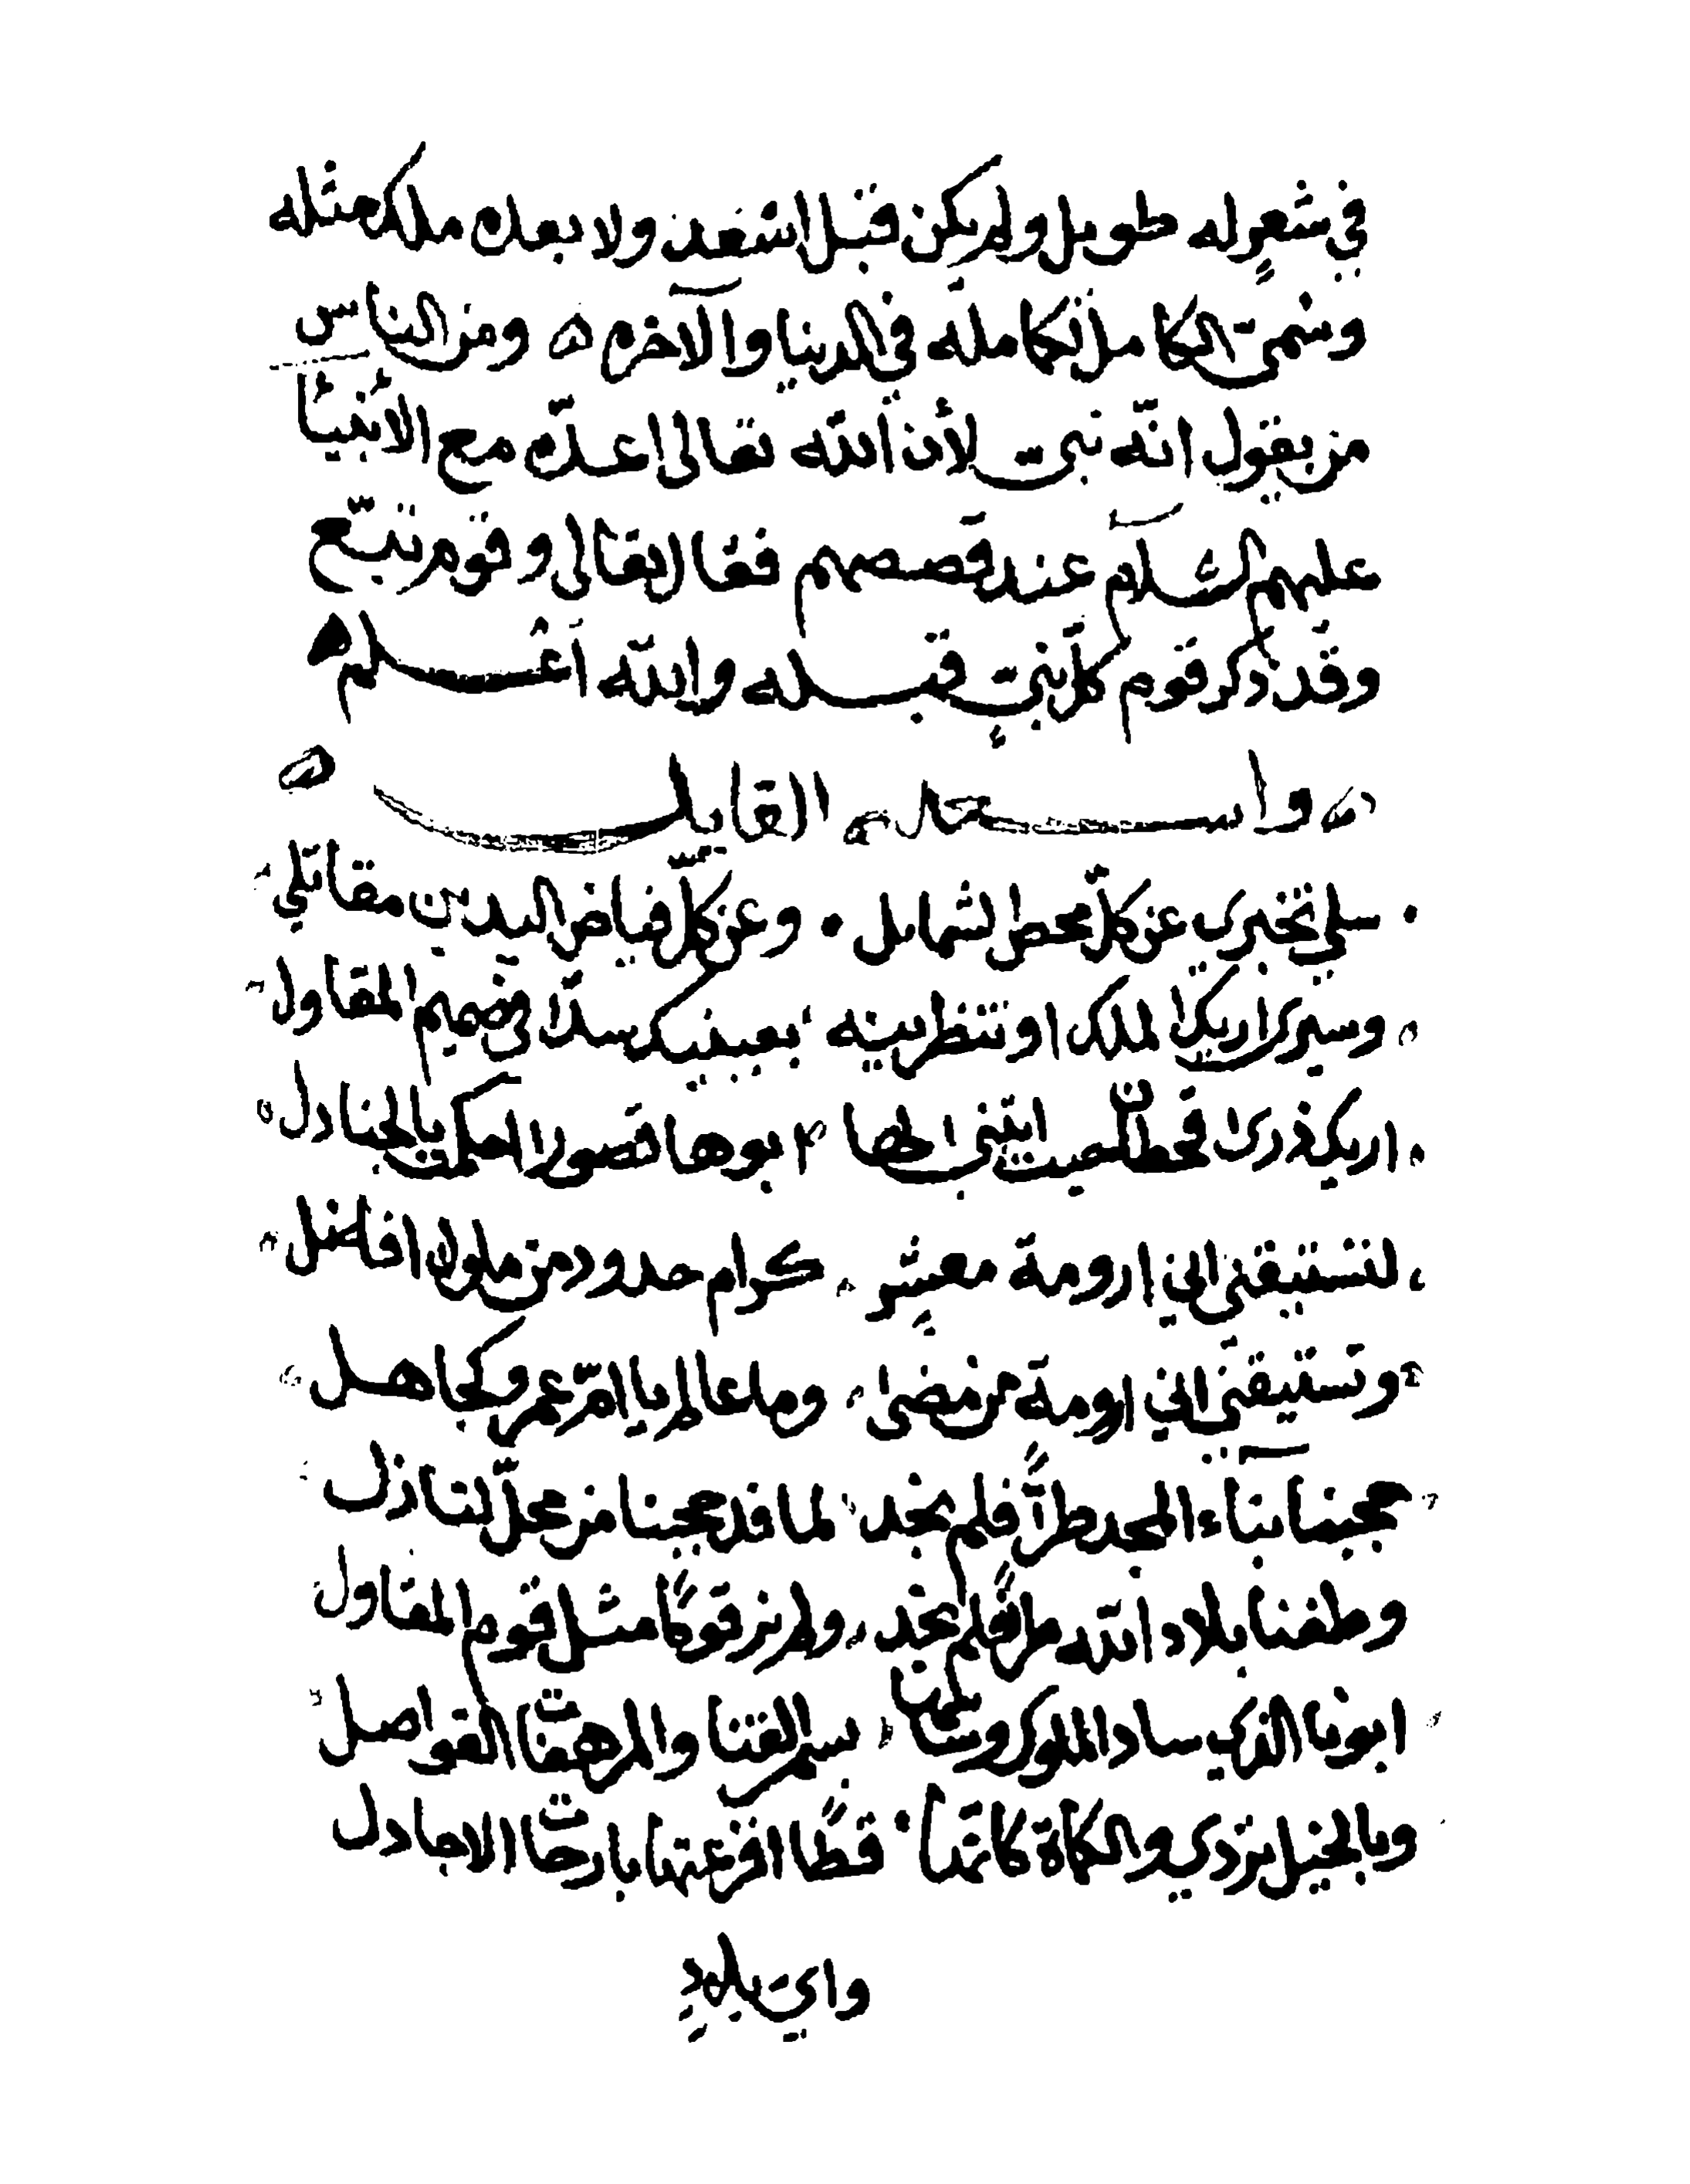 في شعرٍ له طويل ولم يكن قبل اسعد ولا بعده ملك مثله
وسمّي الكامل لكماله في الدنيا والآخره ومن الناس
من يقول انّه نبي لأن الله تعالى اعدّه مع الأنبيا
عليهم السّلام عند قصصهم فقال تعالى وقوم تبّع
وقد ذكر قوم كلّ نبيٍّ قبله والله أعلم
واسعد القايل
سلي تخبري عن كلّ محط الشمايل وعن كلّ فياض اليدين مقاتلي
وسيري اريك الملك او تنظرينه بعينيك سدّا في صميم المقاول
اريك ذرى قحطان حيث ابتنى لها ابوها قصورا احكمت بالجنادل
لتستيقني اني ارومة معشرٍ كرام جدود من ملوك افاضل
وتستيقني اني ارومة من مضى وما عالم يا امّ عمرو كجاهل
عجبنا بناء المجد طرًّا فلم نجد لما قد عجبنا من محلّ لنازل
وطفنا بلاد الله طرًّا فلم نجد ولم نر قومًا مثل قوم المقاول
ابونا الذي ساد الملوك وساسها بسمر القنا والمرهفات القواصل
وبالخيل تردي والكماة كانّها قطًا افزعتها بارحات الاجادل
واي بلادٍ